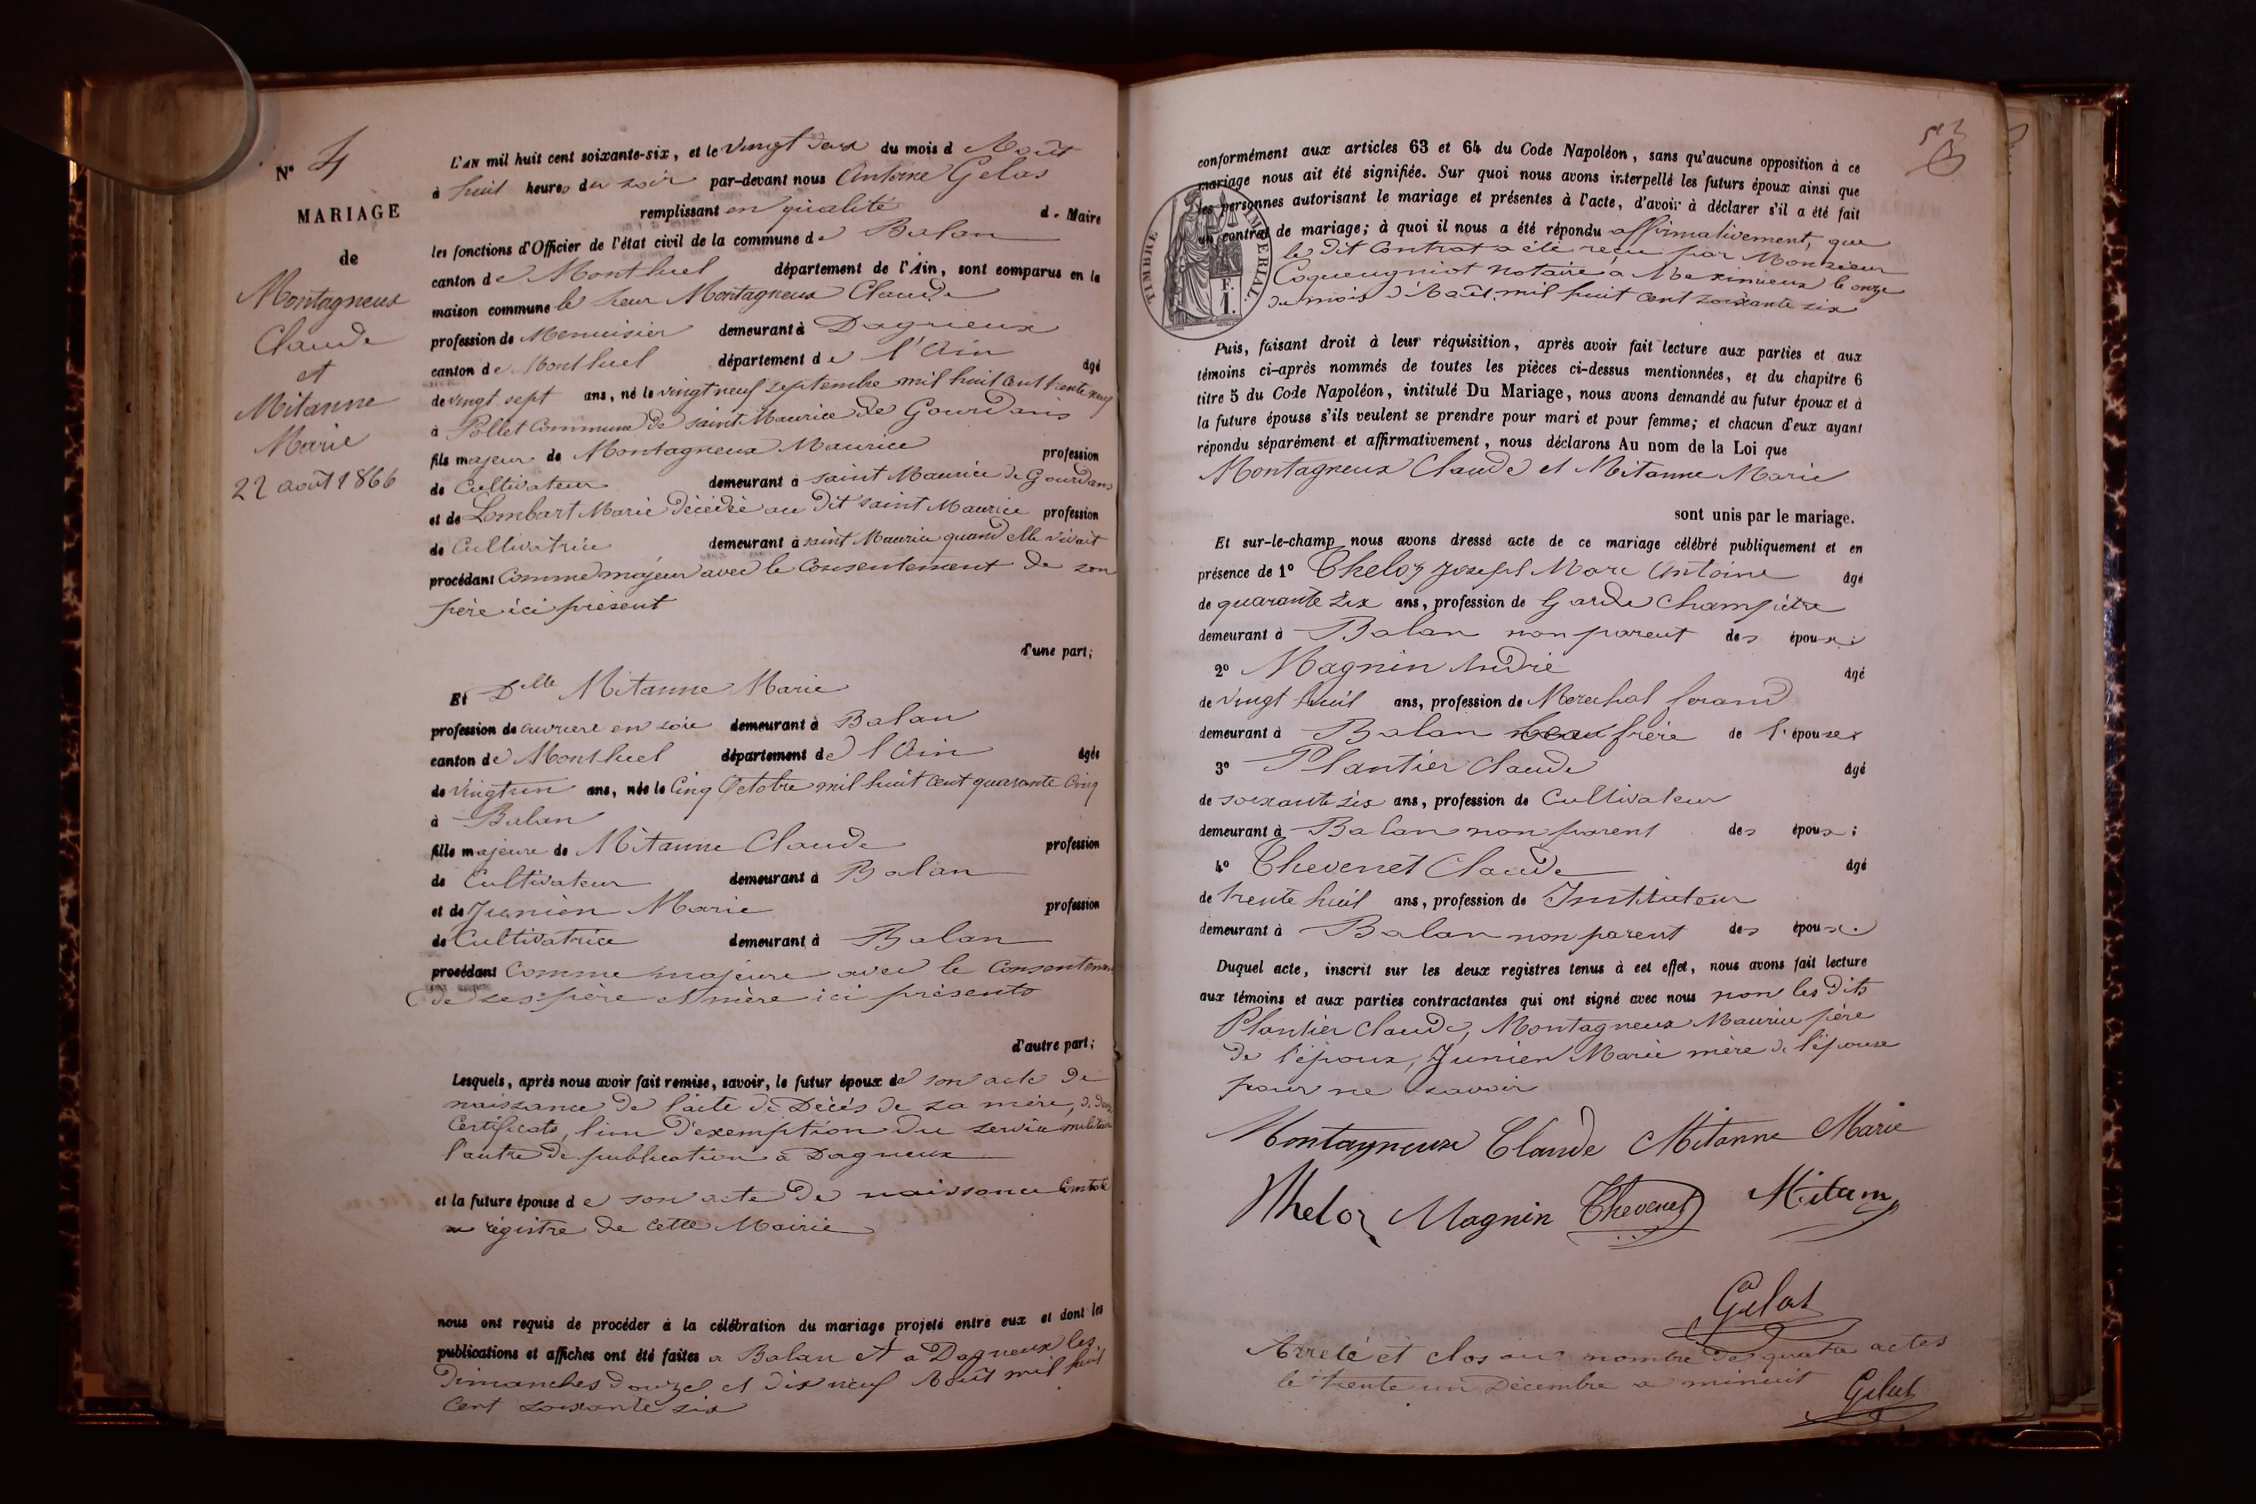 N° 4
MARIAGE
de
Montagneux
Claude
et
Mitanne
Marie
22 août 1866
L'AN mil huit cent soixante-six, et le vingt deux du mois d Août
à huit heures du soir par-devant nous Antoine Gelas
remplissant en qualité d. Maire
les fonctions d'Officier de l'état civil de la commune de Balan
canton de Montluel département de l'Ain, sont comparus en la
maison commune le sieur Montagneux Claude
profession de Menuisier demeurant à Dagnieux
canton de Montluel département de l'Ain âgé
de vingt sept ans, né le vingt neuf septembre mil huit cent trente neuf
à Pollet Commune de saint Maurice de Gourdans
fils majeur de Montagneux Maurice profession
de Cultivateur demeurant à saint Maurice de Gourdans
et de Lombart Marie décédée au dit saint Maurice profession
de Cultivatrice demeurant à saint Maurice quand elle vivait
procédant comme majeur avec le consentement de son
père ici présent
d'une part;
Et Dlle Mitanne Marie
profession de ouvriere en soie demeurant à Balan
canton de Montluel département de l'Ain âgée
de vingt un ans, née le Cinq Octobre mil huit cent quarante Cinq
à Balan
fille majeure de Mitanne Claude profession
de Cultivateur demeurant à Balan
et de Junien Marie profession
de Cultivatrice demeurant à Balan
procédant comme majeure avec le consentement
de ses père et mère ici présents
d'autre part;
Lesquels, après nous avoir fait remise, savoir, le futur époux de son acte de
naissance de l'acte de Décés de sa mère, de deux
Certificats, l'un d'exemption du service militaire
l'autre de publication à Dagneux
et la future épouse de son acte de naissance
au régistre de cette Mairie
nous ont requis de procéder à la célébration du mariage projeté entre eux et dont les
publications et affiches ont été faites a Balan et a Dagneux les
Dimanches douze et dix neuf Août mil huit
cent soixante six
conformément aux articles 63 et 64 du Code Napoléon, sans qu'aucune opposition à ce
mariage nous ait été signifiée. Sur quoi nous avons interpellé les futurs époux ainsi que
les personnes autorisant le mariage et présentes à l'acte, d'avoir à déclarer s'il a été fait
un contrat de mariage; à quoi il nous a été répondu affirmativement, que
le dit Contrat a été reçu par Monsieur
Coqueugniot notaire à Meximieux le onze
du mois d'Août mil huit cent soixante six
TIMBRE IMPERIAL.
F.
1.
Puis, faisant droit à leur réquisition, après avoir fait lecture aux parties et aux
témoins ci-après nommés de toutes les pièces ci-dessus mentionnées, et du chapitre 6
titre 5 du Code Napoléon, intitulé Du Mariage, nous avons demandé au futur époux et à
la future épouse s'ils veulent se prendre pour mari et pour femme; et chacun d'eux ayant
répondu séparément et affirmativement, nous déclarons Au nom de la Loi que
Montagneux Claude et Mitanne Marie
sont unis par le mariage.
Et sur-le-champ nous avons dressé acte de ce mariage célébré publiquement et en
présence de 1° Theloz Joseph Marc Antoine âgé
de quarante six ans, profession de Garde Champêtre
demeurant à Balan non parent des époux;
2° Magnin André âgé
de vingt huit ans, profession de Marechal ferand
demeurant à Balan beau frère de l'épouse
3° Plantier Claude âgé
de soixante six ans, profession de Cultivateur
demeurant à Balan non parent des époux;
4° Thevenet Claude âgé
de trente huit ans, profession de Instituteur
demeurant à Balan non parent des époux.
Duquel acte, inscrit sur les deux registres tenus à cet effet, nous avons fait lecture
aux témoins et aux parties contractantes qui ont signé avec nous non les dits
Plantier Claude, Montagneux Maurice père
de l'époux, Junien Marie mère de l'épouse
pour ne savoir
Montagneux Claude Mitanne Marie
Theloz Magnin Thevenet Mitanne
Gelas
Arreté et clos au nombre de quatre actes
le trente un Décembre a minuit
Gelas